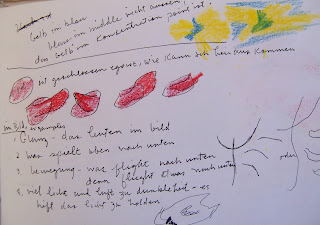 gelb im blau
blau im middle nicht aussen,
das gelb im Konzentration point ist.
ist geschlossen egoist, wie kann ich heraus kommen
im Bild, examples
1. Glanz - das leuten im bild
2. was spielt oben nach unten
3. bewegung - was flieght nach unten
denn flieght etwas nach unten
4. viel licht und luft zu dunkelheit - es
hift das licht zu holden
oder